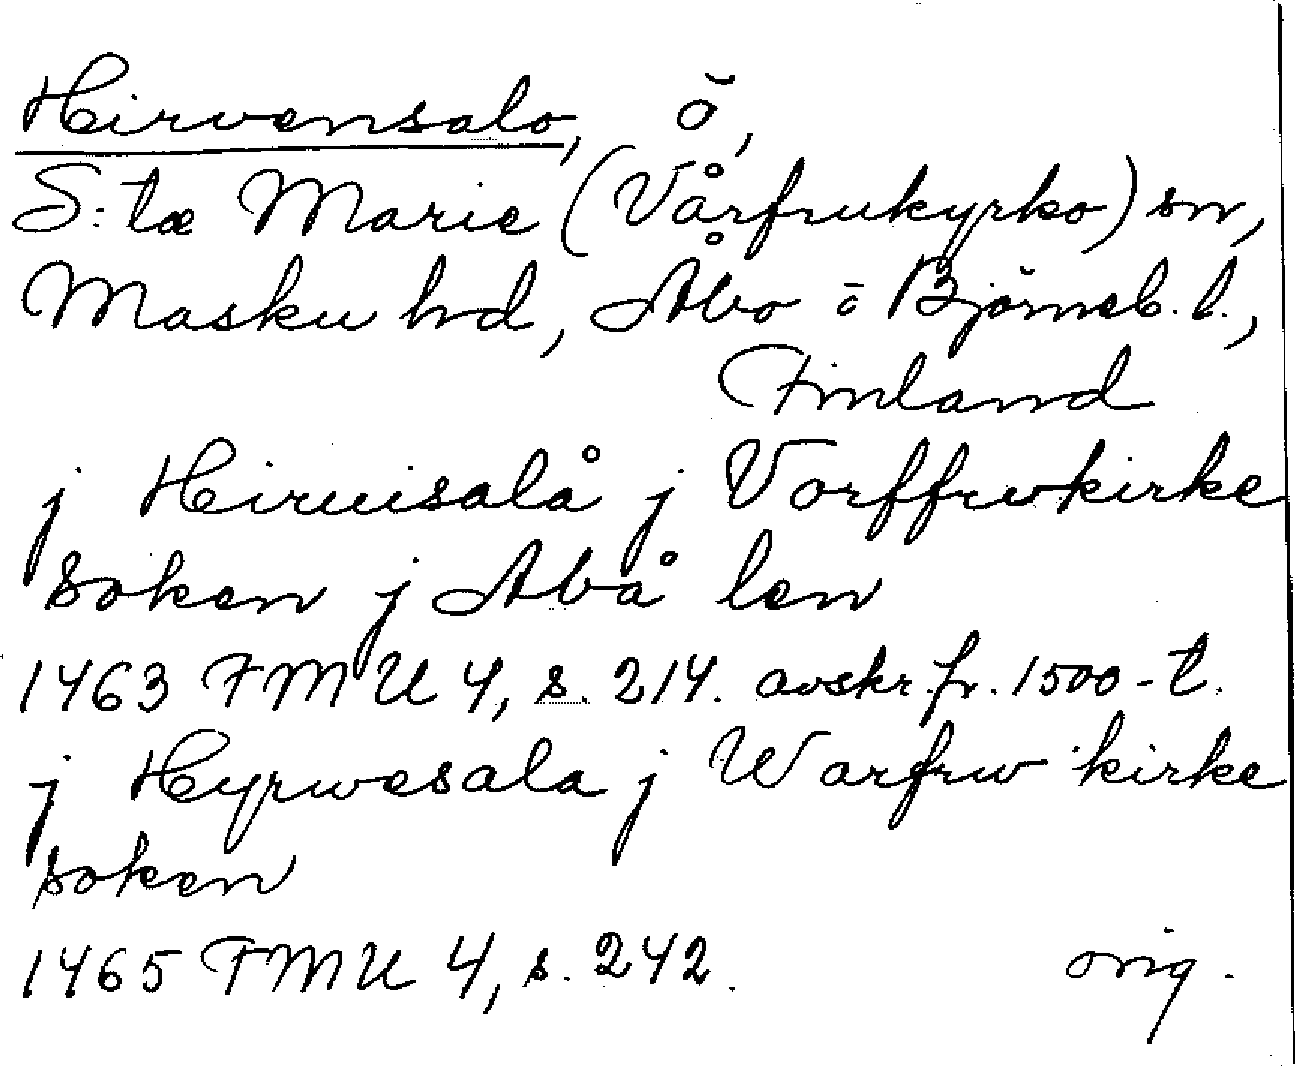 Hirvensalo, ö,
S:ta Marie (Vårfrukyrko) sn,
Masku hd, Åbo ö Björneb. l.,
Finland
j Hiruisalå j Vorffrwkirke
soken j Abå len
1463 FMU 4, s. 214. avskr. fr. 1500-t.
j Hyrwesala j Warfrw kirke
soken
1465 FMU 4, s. 242. orig.